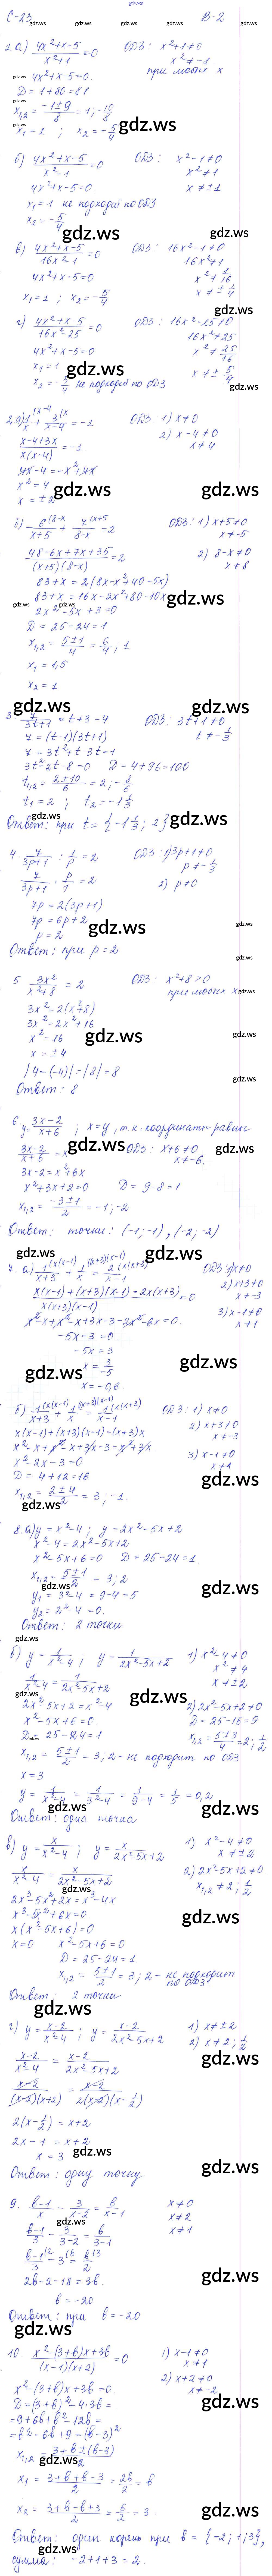 gdz.ws
С-23
В-2
1. а) (4x²+x-5)/(x²+1) = 0   ОДЗ: x²+1≠0
x² ≠ -1
4x²+x-5=0.   при любых x
D = 1+80 = 81
x₁,₂ = (-1±9)/8 = 1; -10/8
x₁ = 1 ; x₂ = -5/4
б) (4x²+x-5)/(x²-1) = 0   ОДЗ: x²-1≠0
4x²+x-5=0   x²≠1
x₁=1 не подходит по ОДЗ   x≠±1
x₂ = -5/4
в) (4x²+x-5)/(16x²-1) = 0   ОДЗ: 16x²-1≠0
16x²≠1
4x²+x-5=0   x²≠1/16
x₁=1 ; x₂=-5/4   x≠±1/4
г) (4x²+x-5)/(16x²-25) = 0   ОДЗ: 16x²-25≠0
16x²≠25
4x²+x-5=0   x²≠25/16
x₁=1
x₂=-5/4 не подходит по ОДЗ   x≠±5/4
2 а) 1/x + 3/(x-4) = -1   ОДЗ. 1) x≠0
(x-4+3x)/(x(x-4)) = -1   2) x-4≠0
x≠4
4x-4=-x²+4x
x²=4
x = ±2
б) 6/(x+5) + 7/(8-x) = 2   ОДЗ: 1) x+5≠0
x≠-5
(48-6x+7x+35)/((x+5)(8-x)) = 2   2) 8-x≠0
x≠8
83+x = 2(8x-x²+40-5x)
83+x = 16x-2x²+80-10x
2x²-5x+3=0
D = 25-24=1
x₁,₂ = (5±1)/4 = 6/4; 1
x₁ = 1,5
x₂ = 1
3. 7/(3t+1) = t+3-4   ОДЗ: 3t+1≠0
7 = (t-1)(3t+1)   t≠-1/3
7 = 3t²+t-3t-1
3t²-2t-8=0   D=4+96=100
t₁,₂ = (2±10)/6 = 2; -8/6
t₁=2 ; t₂=-1 1/3
Ответ: при t = {-1 1/3; 2}
4 7/(3p+1) : 1/p = 2   ОДЗ: 1) 3p+1≠0
p≠-1/3
7/(3p+1) · p/1 = 2   2) p≠0
7p = 2(3p+1)
7p = 6p+2
p = 2
Ответ: при p=2
5 3x²/(x²+8) = 2   ОДЗ: x²+8>0
при любых x
3x²=2(x²+8)
3x²=2x²+16
x²=16
x = ±4
|4-(-4)| = |8| = 8
Ответ: 8
6 y=(3x-2)/(x+6) ; x=y, т.к. координаты равны
(3x-2)/(x+6) = x   ОДЗ: x+6≠0
x≠-6.
3x-2=x²+6x
x²+3x+2=0   D=9-8=1
x₁,₂ = (-3±1)/2 = -1; -2
Ответ: точки: (-1;-1), (-2;-2)
7. а) 1/(x+3) + 1/x = 2/(x-1)   ОДЗ: 1) x≠0
2) x+3≠0
x≠-3
(x(x-1)+(x+3)(x-1)-2x(x+3))/(x(x+3)(x-1)) = 0   3) x-1≠0
x≠1
x²-x+x²-x+3x-3-2x²-6x=0.
-5x-3=0.
-5x=3
x = 3/-5
x=-0,6.
б) 1/(x+3) + 1/x = 1/(x-1)   ОДЗ: 1) x≠0
x(x-1)+(x+3)(x-1)=(x+3)x   2) x+3≠0
x≠-3
x²-x+x²-x+3x-3=x²+3x   3) x-1≠0
x²-2x-3=0   x≠1
D = 4+12=16
x₁,₂ = (2±4)/2 = 3; -1.
8. а) y=x²-4 ; y=2x²-5x+2
x²-4=2x²-5x+2
x²-5x+6=0   D=25-24=1.
x₁,₂ = (5±1)/2 = 3; 2
y₁ = 3²-4 = 9-4=5
y₂ = 2²-4 = 0.
Ответ: 2 точки
б) y=1/(x²-4) ; y=1/(2x²-5x+2)   1) x²-4≠0
x²≠4
1/(x²-4) = 1/(2x²-5x+2)   x≠±2
2x²-5x+2=x²-4   2) 2x²-5x+2≠0
x²-5x+6=0.   D=25-16=9
D=25-24=1   x₁,₂=(5±3)/4=2; 1/2
x₁,₂ = (5±1)/2 = 3; 2 - не подходит по ОДЗ
x=3
y = 1/(x²-4) = 1/(3²-4) = 1/(9-4) = 1/5 = 0,2
Ответ: одна точка
в) y=x/(x²-4) ; y=x/(2x²-5x+2)   1) x²-4≠0
x≠±2
x/(x²-4) = x/(2x²-5x+2)   2) 2x²-5x+2≠0
x₁,₂≠2; 1/2
2x³-5x²+2x=x³-4x
x³-5x²+6x=0
x(x²-5x+6)=0
x=0   x²-5x+6=0
D=25-24=1
x₁,₂ = (5±1)/2 = 3; 2 - не подходит по ОДЗ
Ответ: 2 точки
г) y=(x-2)/(x²-4) ; y=(x-2)/(2x²-5x+2)   1) x≠±2
2) x≠2; 1/2
(x-2)/(x²-4) = (x-2)/(2x²-5x+2)
(x-2)/((x-2)(x+2)) = (x-2)/(2(x-2)(x-1/2))
2(x-1/2)=x+2
2x-1=x+2
x=3
Ответ: одну точку
9. (b-1)/x - 3/(x-2) = b/(x-1)   x≠0
x≠2
(b-1)/3 - 3/(3-2) = b/(3-1)   x≠1
(b-1)/3 - 3 = b/2
2b-2-18=3b.
b=-20
Ответ: при b=-20
10 (x²-(3+b)x+3b)/((x-1)(x+2)) = 0   1) x-1≠0
x≠1
x²-(3+b)x+3b=0.   2) x+2≠0
x≠-2
D=(3+b)²-4·3b=
=9+6b+b²-12b=
=b²-6b+9=(b-3)²
x₁,₂ = (3+b±(b-3))/2
x₁ = (3+b+b-3)/2 = 2b/2 = b
x₂ = (3+b-b+3)/2 = 6/2 = 3.
Ответ: один корень при b={-2; 1; 3},
сумма: -2+1+3=2.